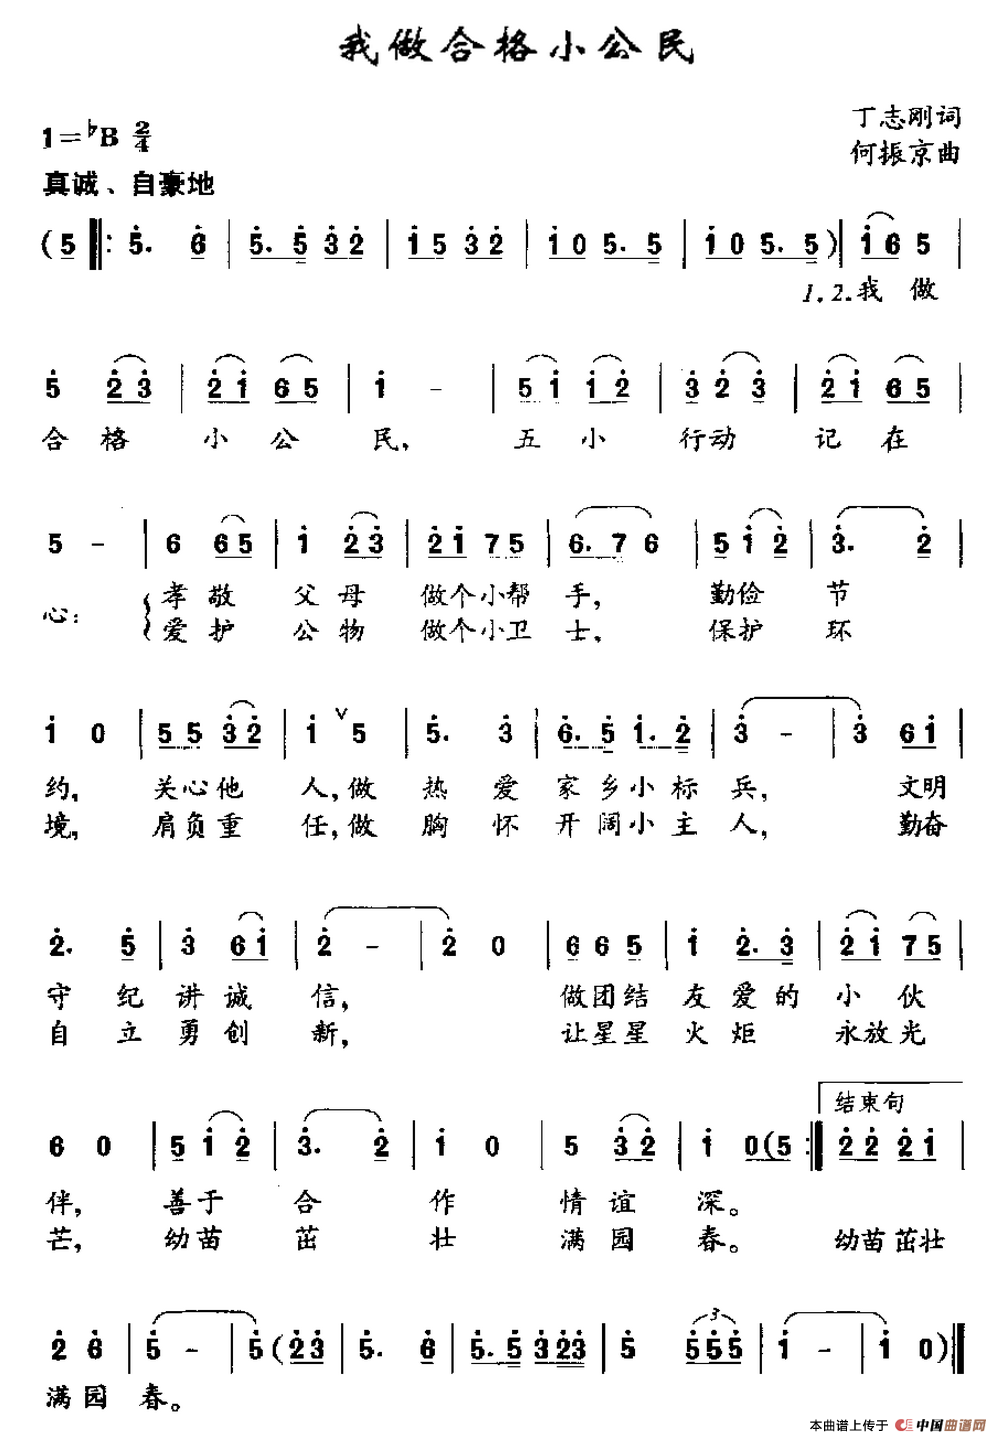 我做合格小公民
丁志刚词
1=♭B 2/4
何振京曲
真诚、自豪地
(5 ‖: 5. 6 | 5. 5 3 2 | 1 5 3 2 | 1 0 5. 5 | 1 0 5. 5 ) | 1 6 5 |
1.2.我 做
5 2 3 | 2 1 6 5 | 1 - | 5 1 1 2 | 3 2 3 | 2 1 6 5 |
合 格 小 公 民, 五 小 行动 记 在
5 - | 6 6 5 | 1 2 3 | 2 1 7 5 | 6. 7 6 | 5 1 2 | 3. 2 |
心: 孝 敬 父 母 做个小帮 手, 勤俭 节
爱 护 公 物 做个小卫 士, 保护 环
1 0 | 5 5 3 2 | 1 ∨ 5 | 5. 3 | 6. 5 1. 2 | 3 - | 3 6 1 |
约, 关心他 人,做 热 爱 家乡小标 兵, 文明
境, 肩负重 任,做 胸 怀 开阔小主 人, 勤奋
2. 5 | 3 6 1 | 2 - | 2 0 | 6 6 5 | 1 2. 3 | 2 1 7 5 |
守 纪 讲诚 信, 做团结 友 爱的 小 伙
自 立 勇创 新, 让星星 火 炬 永放光
结束句
6 0 | 5 1 2 | 3. 2 | 1 0 | 5 3 2 | 1 0 (5 :‖ 2 2 2 1 |
伴, 善于 合 作 情 谊 深。
芒, 幼苗 茁 壮 满 园 春。 幼苗茁壮
2 6 | 5 - | 5 (2 3 | 5. 6 | 5. 5 3 2 3 | 5 5 5 5 | 1 - | 1 0 ) ‖
3
满 园 春。
本曲谱上传于 中国曲谱网